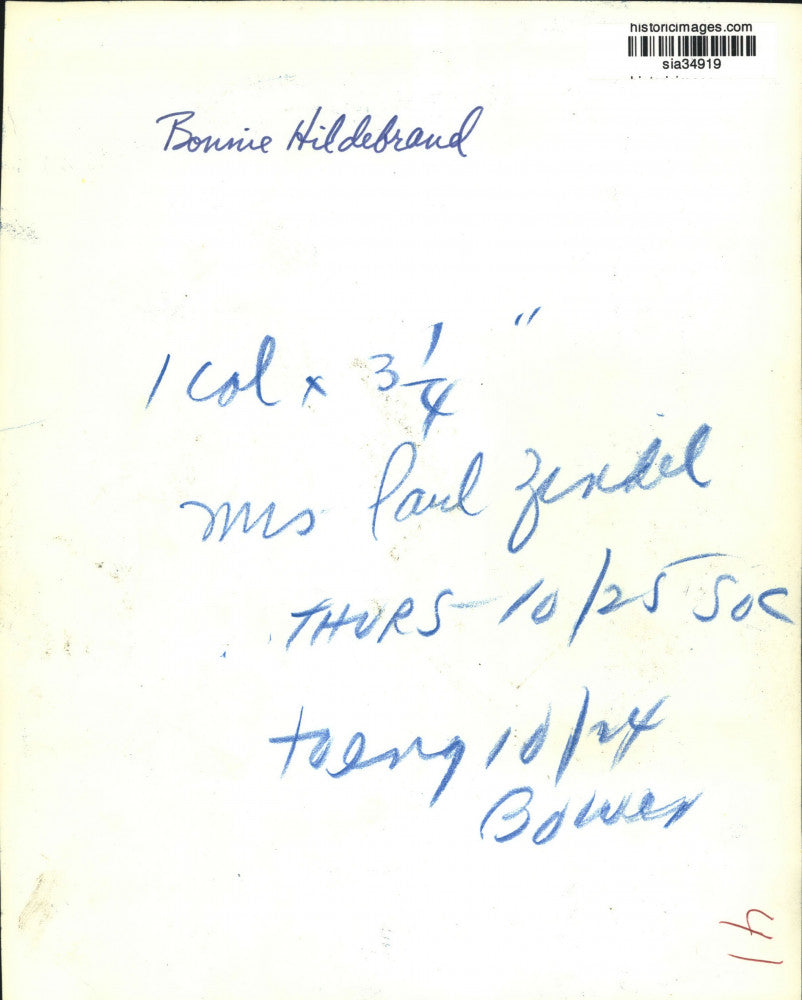 historicimages.com
sia34919
Bonnie Hildebrand
1 Col x 3 1/4 "
Mrs Paul Zindel
THURS- 10/25 SOC
to eng 10/24
Bowen
41